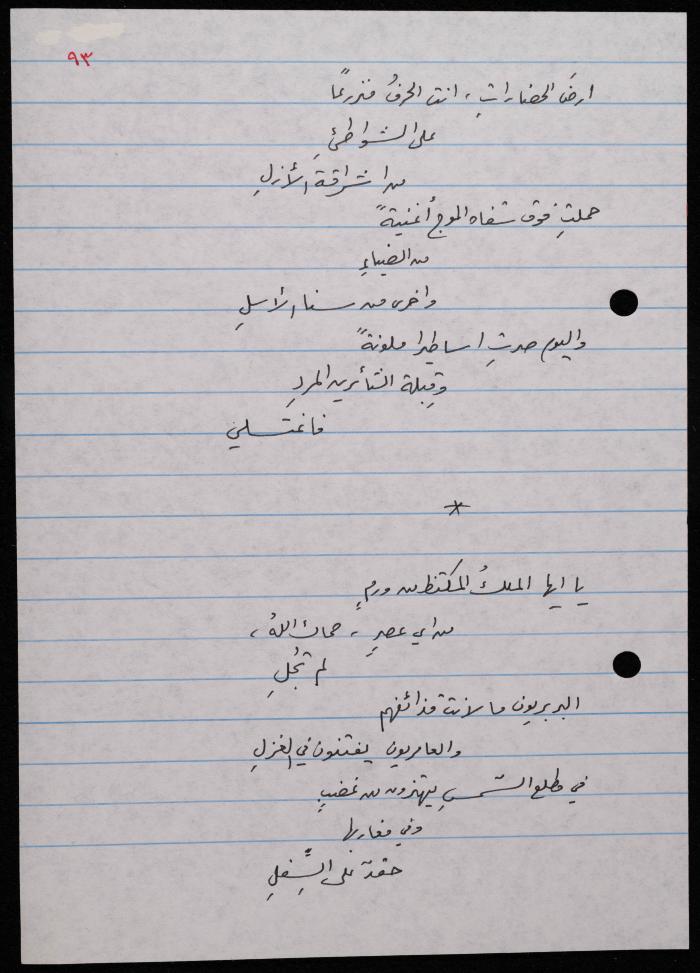 ٩٣
ارضَ الحضاراتِ ، انت الحرفُ مزدرعًا
على الشواطئِ
من اشراقة الأزلِ
حملتِ فوق شفاه الموج أغنيةً
من الضياءِ
واخرى من سنا الأسلِ
واليوم صرتِ اساطيرا ملونةً
وقبلة الثائرين المردِ
فاغتسلي
*
يا ايها الملكُ المكتظ من ورمٍ
من اي عصرٍ ، حماك اللهُ ،
لم تجُلِ
البربريون ما لانت قذائفهم
والعامريون يفتنون في الغزلِ
في مطلع الشمسِ يهتزون من غضبٍ
وفي مغاربها
حقدٌ على السِّفلِ